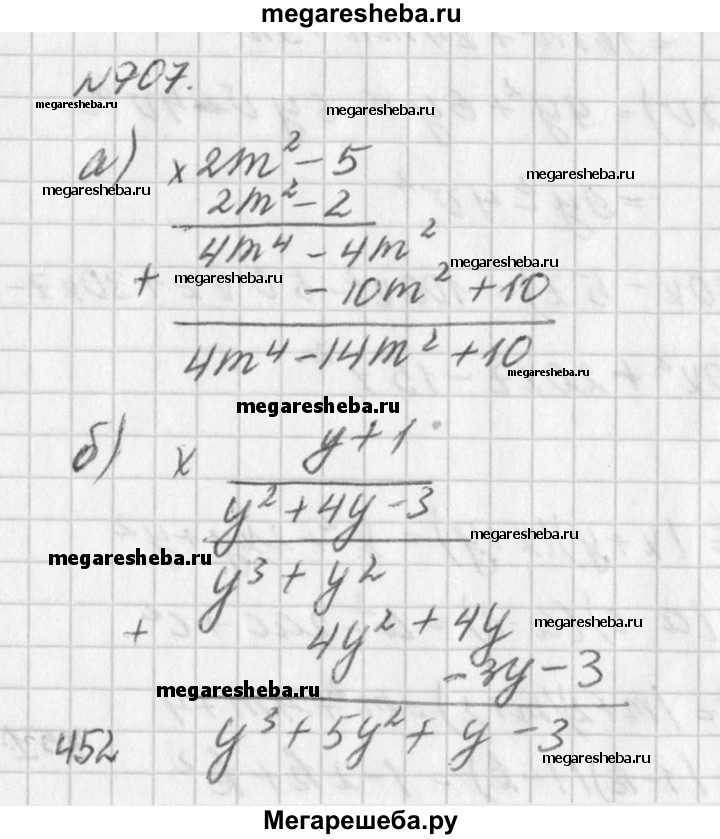 megaresheba.ru
№707.
megaresheba.ru
megaresheba.ru
а) x 2m² - 5
megaresheba.ru
megaresheba.ru
2m² - 2
4m⁴ - 4m²
megaresheba.ru
+ megaresheba.ru - 10m² + 10
4m⁴ - 14m² + 10
megaresheba.ru
megaresheba.ru
б) x y + 1
y² + 4y - 3
megaresheba.ru
megaresheba.ru
y³ + y²
+ 4y² + 4y
megaresheba.ru
- 3y - 3
megaresheba.ru
452 y³ + 5y² + y - 3
megaresheba.ru
Мегарешеба.ру